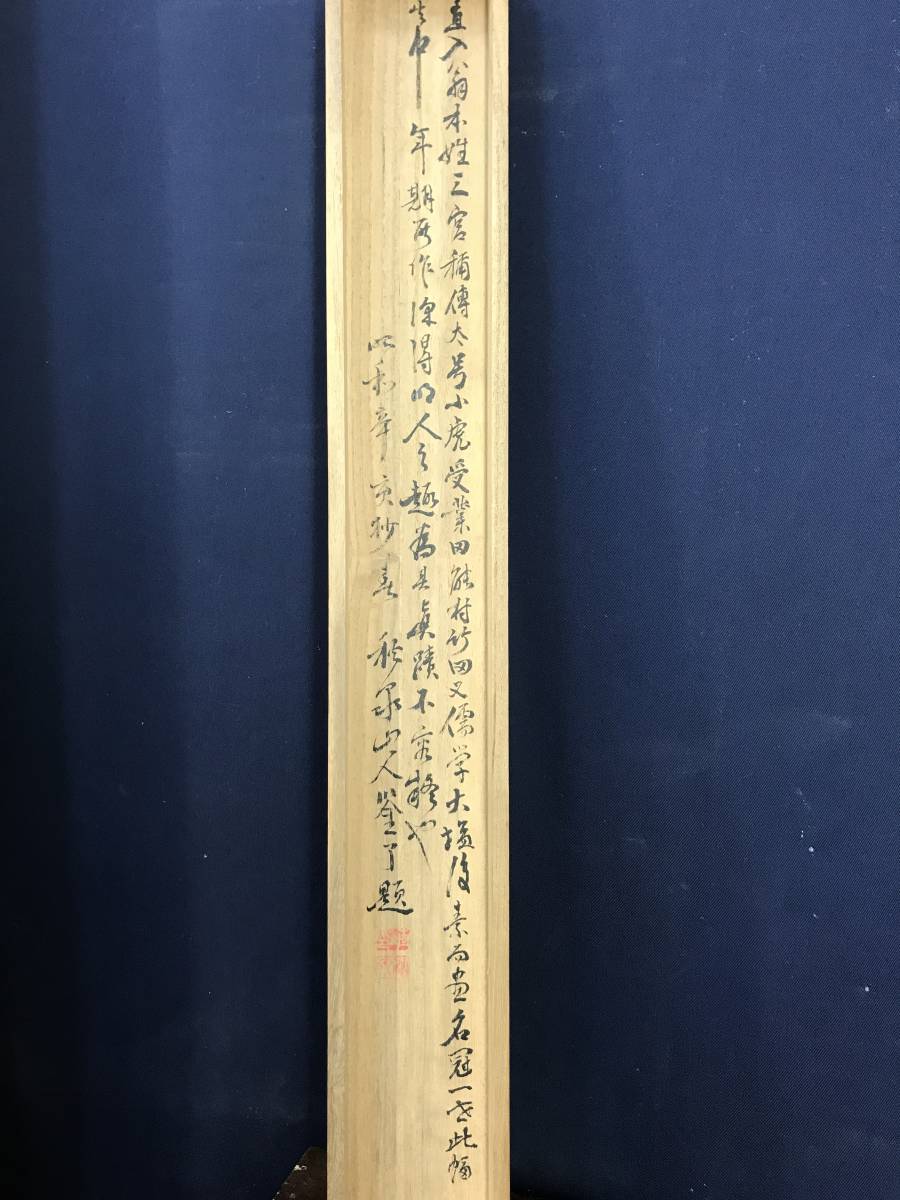 直入翁本姓三宮称傳太号小虎受業田能村竹田又儒学大塩後素而画名冠一世此幅
中年期所作深得明人之趣為其真蹟不容疑也
昭和辛亥杪春 秋泉山人鑒了題